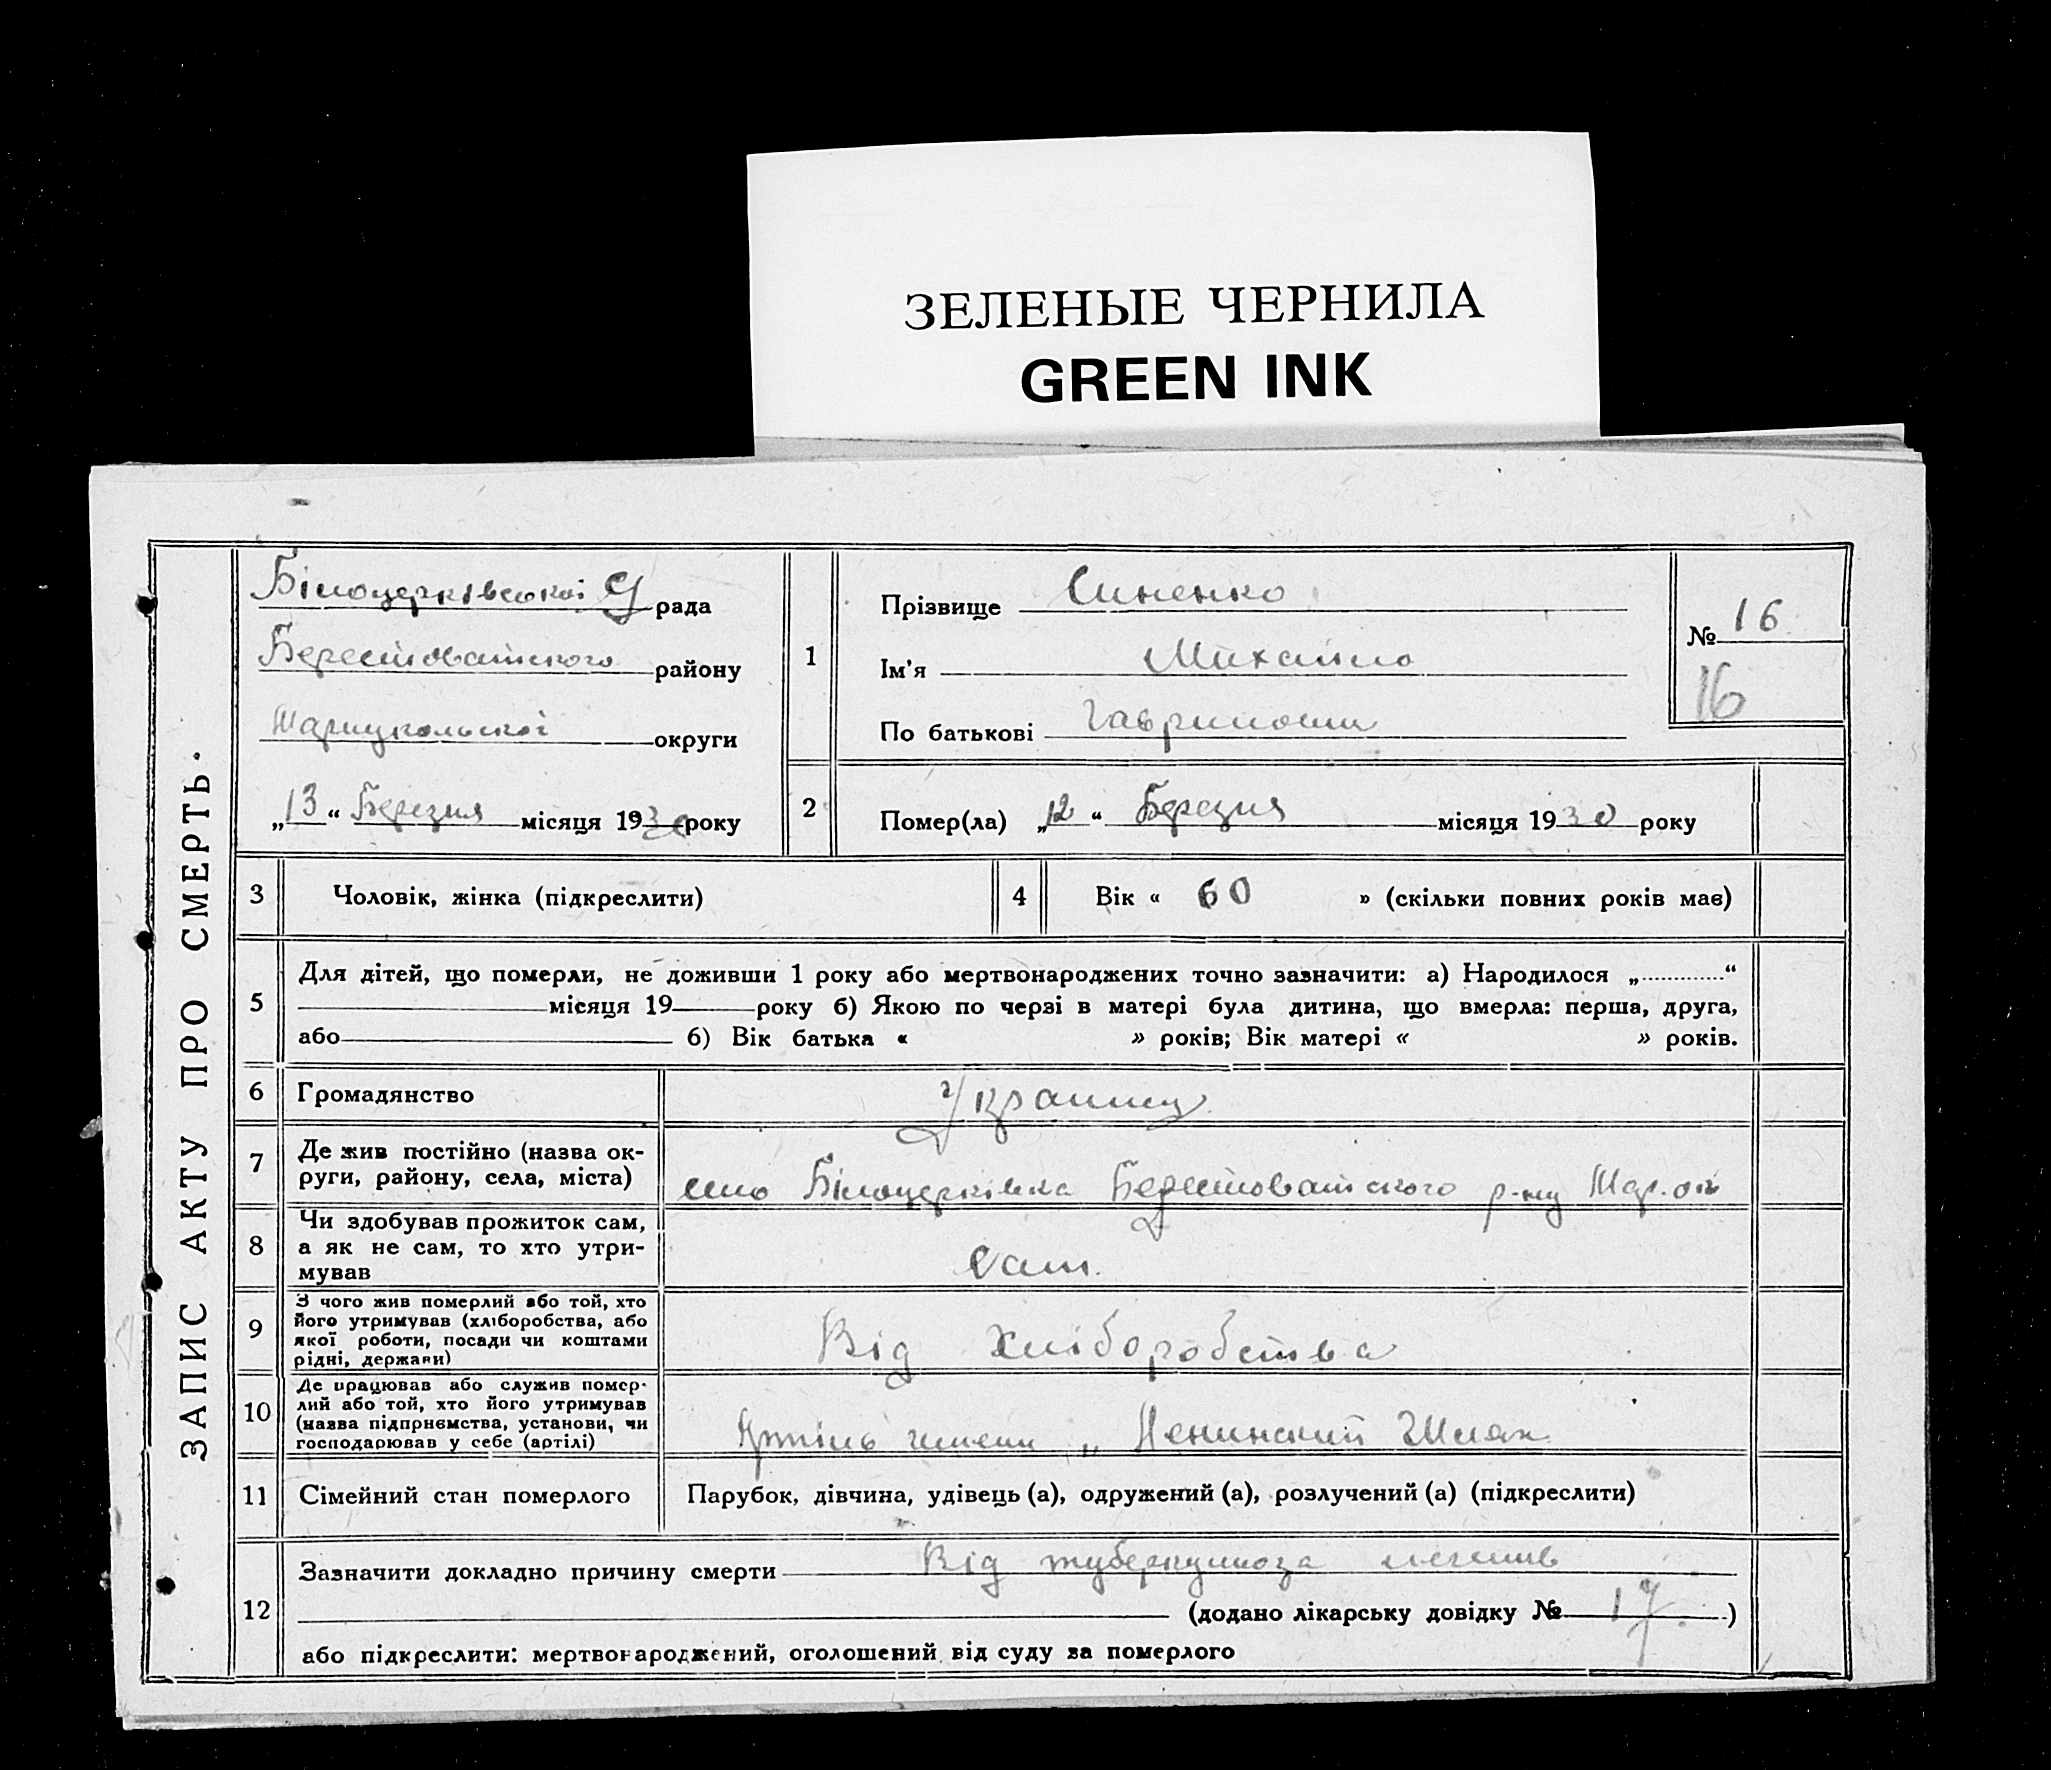 ЗЕЛЕНЫЕ ЧЕРНИЛА
GREEN INK
ЗАПИС АКТУ ПРО СМЕРТЬ.
Білоцерківської С рада
Берестоватського району
Маріупольської округи
„13“ Березня місяця 1930 року
1
Прізвище Синенко
Ім'я Михайло
По батькові Гаврилович
№ 16
16
2
Помер(ла) „12“ Березня місяця 1930 року
3 Чоловік, жінка (підкреслити)
4 Вік « 60 » (скільки повних років має)
5
Для дітей, що померли, не доживши 1 року або мертвонароджених точно зазначити: а) Народилося „............“
місяця 19 року б) Якою по черзі в матері була дитина, що вмерла: перша, друга,
або б) Вік батька « » років; Вік матері « » років.
6 Громадянство Українец
7 Де жив постійно (назва ок-
руги, району, села, міста)
село Білоцерківка Берестоватського р-ну Мар. ок
8 Чи здобував прожиток сам,
а як не сам, то хто утри-
мував
Сам.
9 З чого жив померлий або той, хто
його утримував (хліборобства, або
якої роботи, посади чи коштами
рідні, держави)
Від Хліборобства
10 Де працював або служив помер-
лий або той, хто його утримував
(назва підприємства, установи, чи
господарював у себе (артілі)
Артіль имени „Ленинский Шлях
11 Сімейний стан померлого Парубок, дівчина, удівець (а), одружений (а), розлучений (а) (підкреслити)
12
Зазначити докладно причину смерти Від туберкульоза легенів
(додано лікарську довідку № 17.)
або підкреслити: мертвонароджений, оголошений від суду за померлого